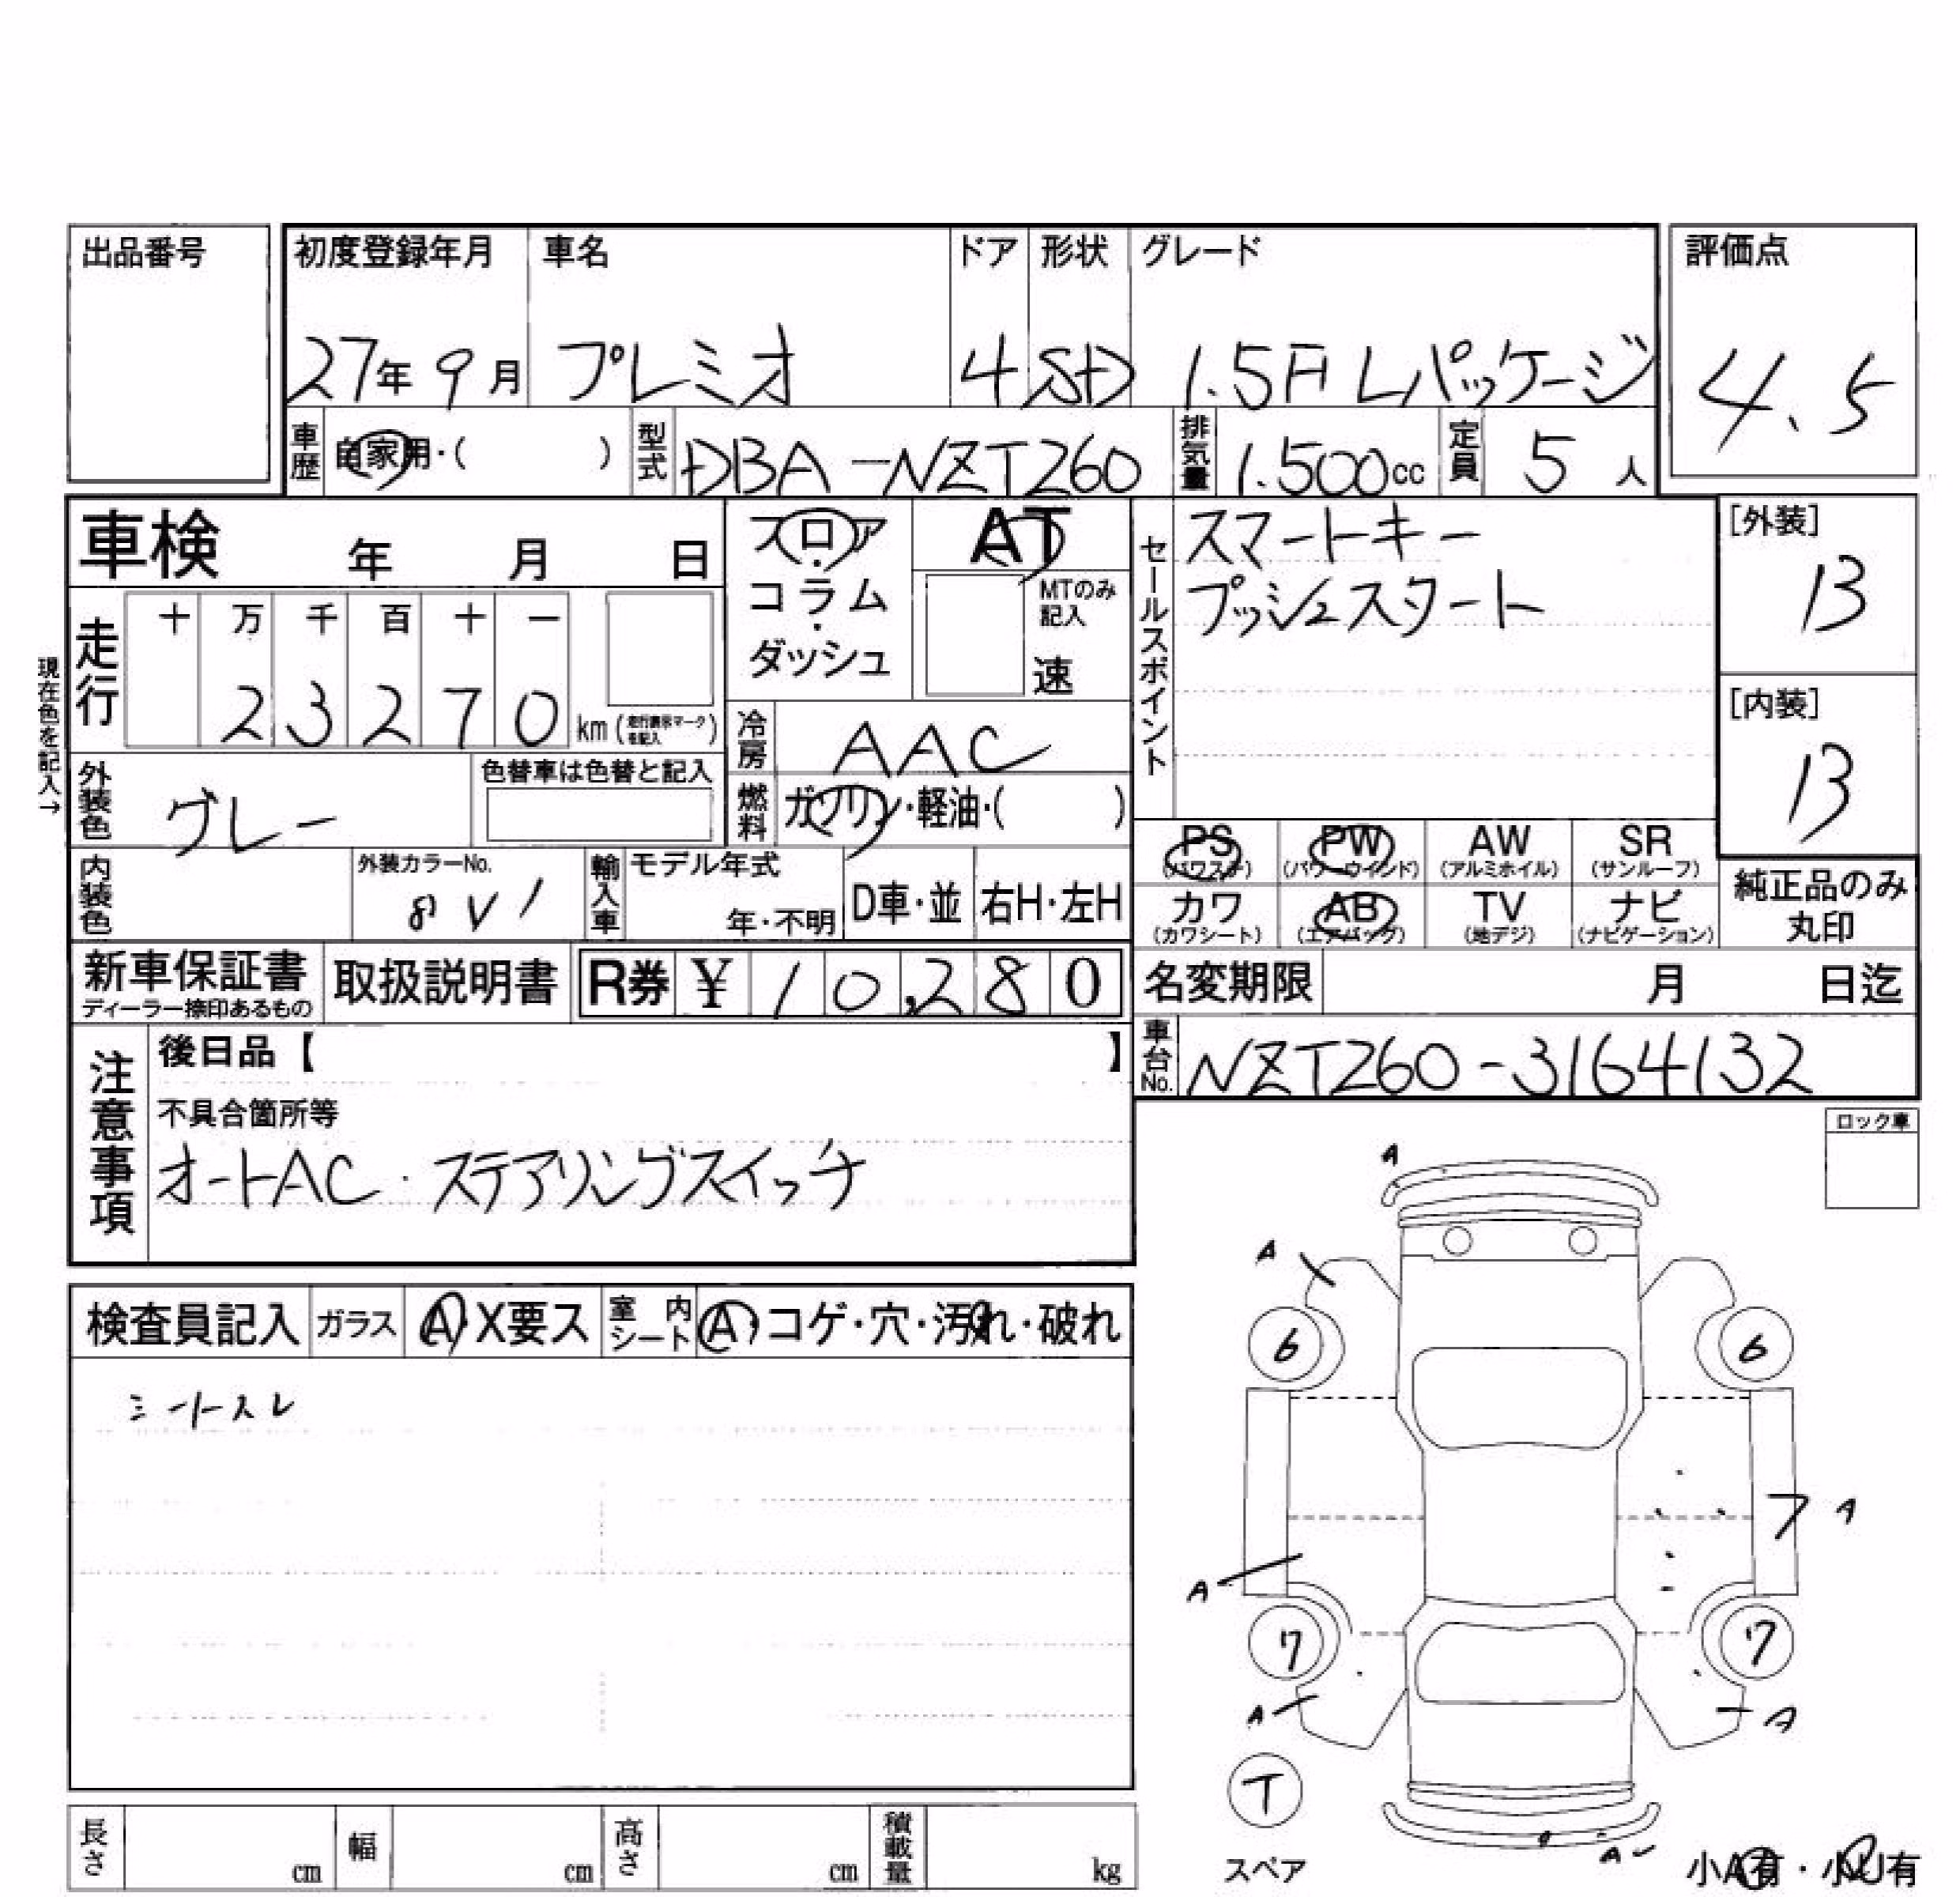 出品番号
初度登録年月 車名 ドア 形状 グレード 評価点
27年 9月 プレミオ 4 SD 1.5F Lパッケージ 4.5
車歴 自家用・( ) 型式 DBA-NZT260 排気量 1.500cc 定員 5人
車検 年 月 日
フロア・コラム・ダッシュ
AT
MTのみ記入
速
セールスポイント
スマートキー
プッシュスタート
[外装]
13
[内装]
13
走行 十 万 千 百 十 一
2 3 2 7 0 km (走行表示マークを記入)
現在色を記入→
冷房 AAC
外装色 グレー 色替車は色替と記入
燃料 ガソリン・軽油・( )
内装色 外装カラーNo. 8V1
輸入車 モデル年式 年・不明 D車・並 右H・左H
PS (パワステ) PW (パワーウインド) AW (アルミホイル) SR (サンルーフ)
カワ (カワシート) AB (エアバッグ) TV (地デジ) ナビ (ナビゲーション)
純正品のみ丸印
新車保証書 ディーラー捺印あるもの 取扱説明書 R券 ¥ 10,280
名変期限 月 日迄
車台No. NZT260-3164132
注意事項
後日品【 】
不具合箇所等
オートAC・ステアリングスイッチ
ロック車
検査員記入 ガラス A・X要ス 室内シート A・コゲ・穴・汚れ・破れ
シートスレ
A
A
6 6
A
A
7 7
A A
T
スペア
A
小A有・小U有
長さ cm 幅 cm 高さ cm 積載量 kg